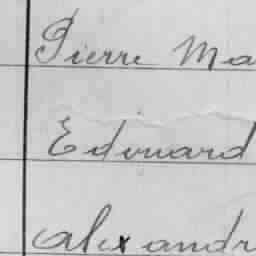 Pierre Ma
Edouard
Alexandr